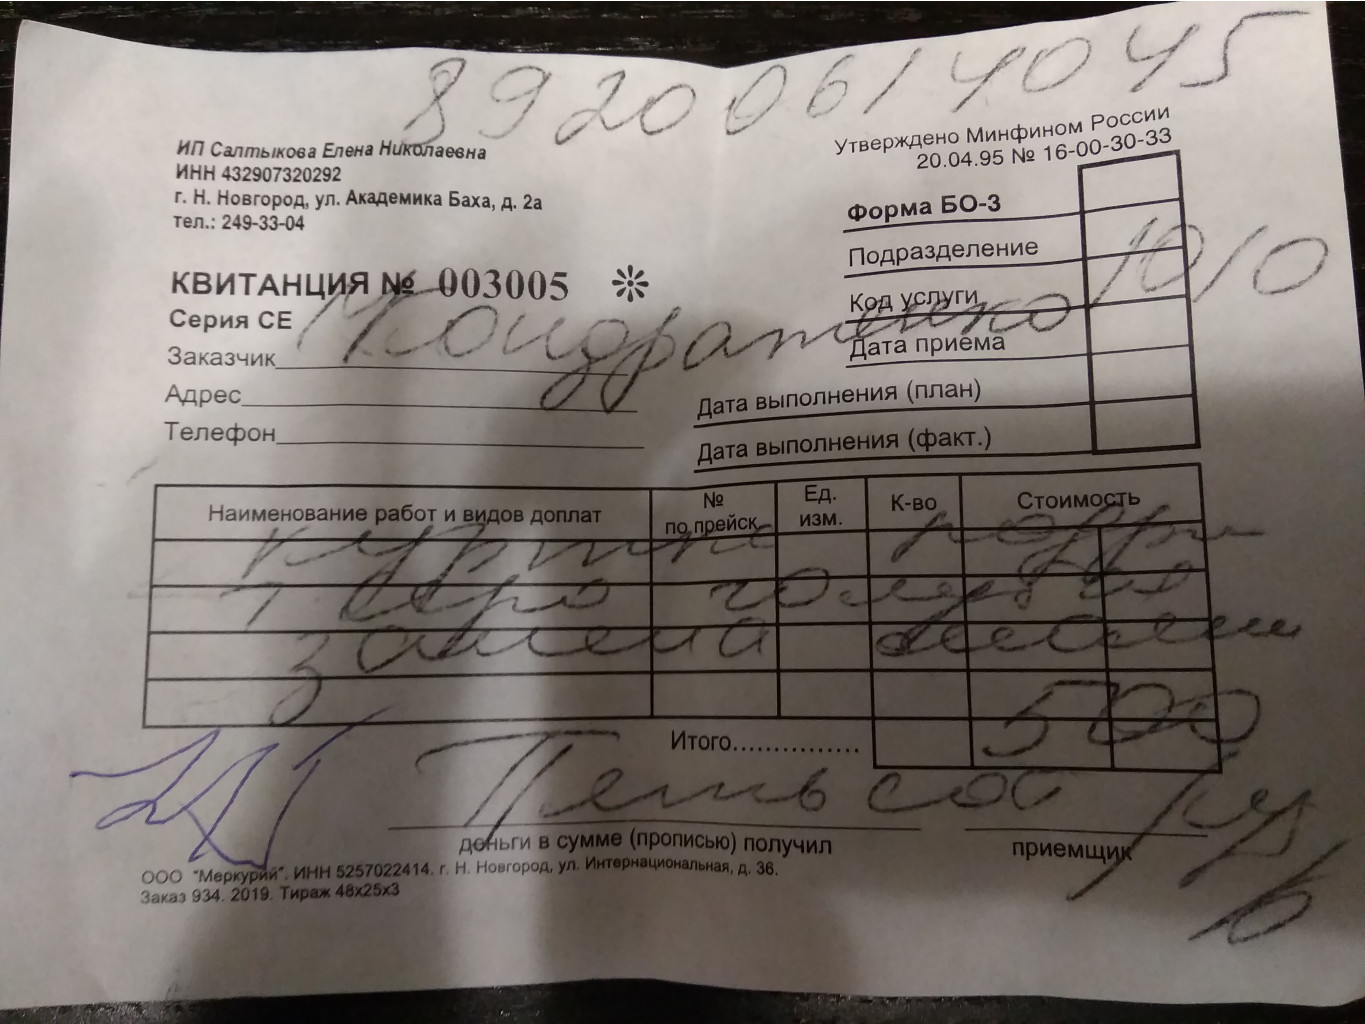 89200614045
ИП Салтыкова Елена Николаевна
ИНН 432907320292
г. Н. Новгород, ул. Академика Баха, д. 2а
тел.: 249-33-04
Утверждено Минфином России
20.04.95 № 16-00-30-33
Форма БО-3
Подразделение
Код услуги
Дата приема
Дата выполнения (план)
Дата выполнения (факт.)
10/0
КВИТАНЦИЯ № 003005
Серия СЕ
Заказчик Кондратенко
Адрес
Телефон
Наименование работ и видов доплат № по прейск. Ед. изм. К-во Стоимость
куртка
т серо голубая
замена молнии
500
Итого
Пятьсот руб
деньги в сумме (прописью) получил
приемщик
ООО "Меркурий". ИНН 5257022414. г. Н. Новгород, ул. Интернациональная, д. 36.
Заказ 934. 2019. Тираж 48х25х3